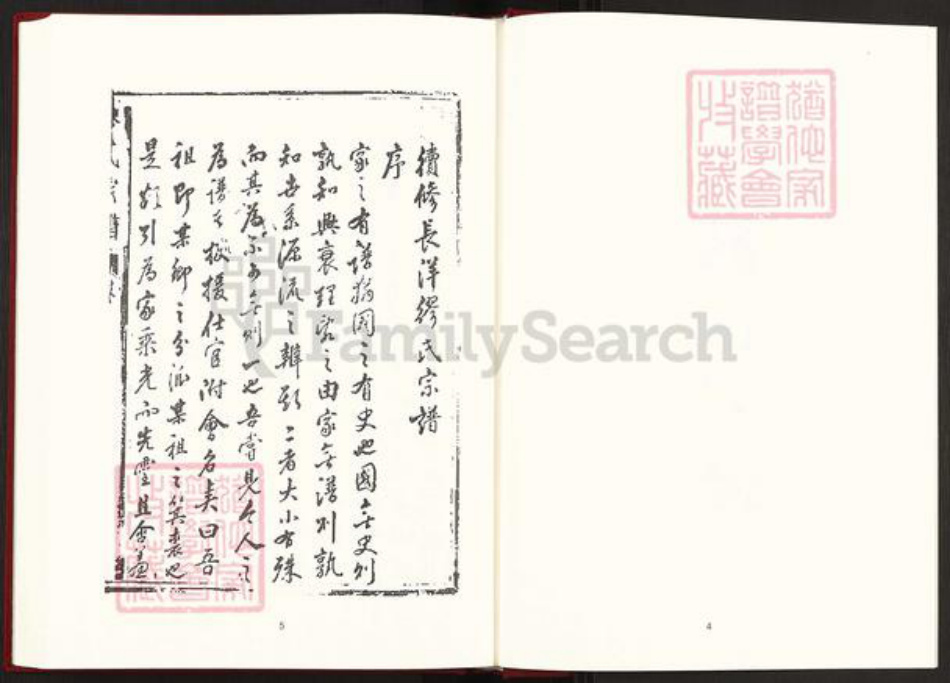 猶他家
譜學會
收藏
4
續修長洋繆氏宗譜
序
家之有譜猶國之有史也國無史則
孰知興衰理亂之由家無譜則孰
知世系源流之辯歟二者大小有殊
而其為不可無則一也吾嘗見今人之
為譜者攀援仕宦附會名夫曰吾
祖即某鄉之分派某祖之箕裘也
是類引為家乘光而先靈且含羞
氏宗譜
猶他家
譜學會
收藏
5
FamilySearch